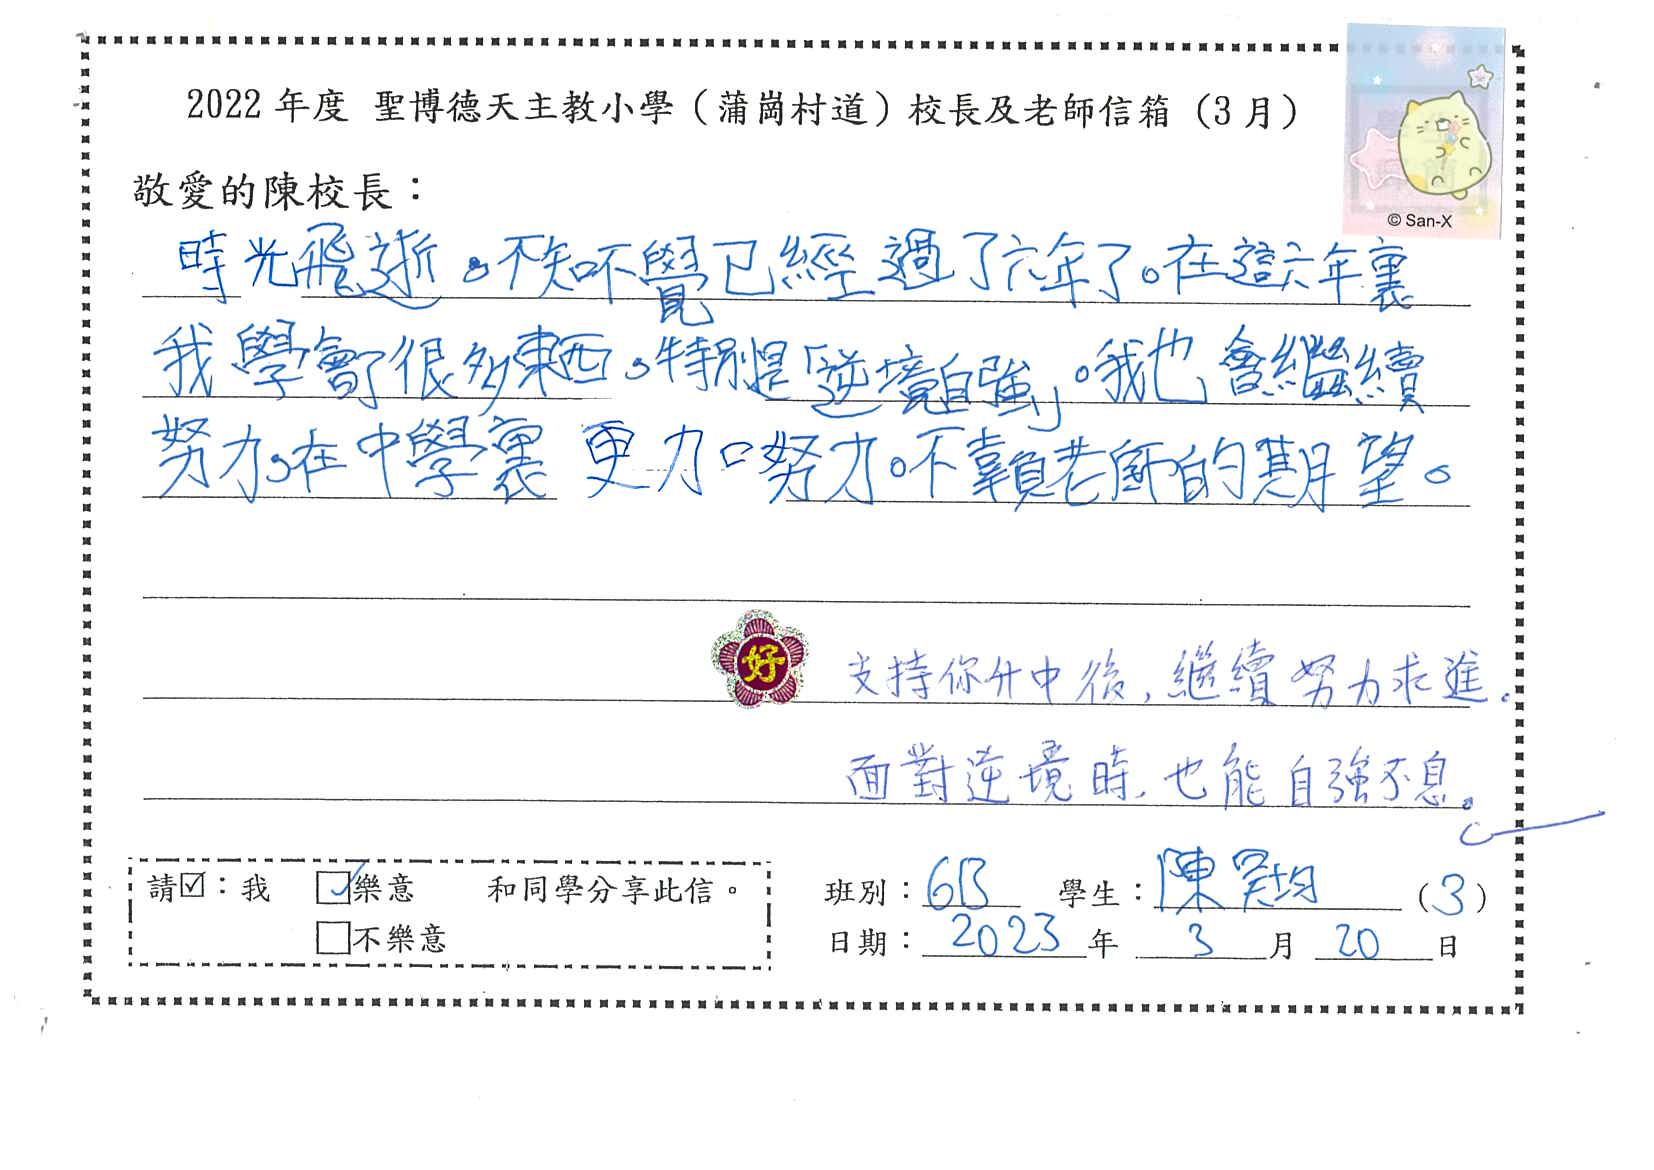 2022 年度 聖博德天主教小學（蒲崗村道）校長及老師信箱（3 月）
© San-X
敬愛的陳校長：
時光飛逝。不知不覺已經過了六年了。在這六年裏
我學會了很多東西。特別是「逆境自強」。我也會繼續
努力。在中學裏更加努力。不辜負老師的期望。
好
支持你升中後，繼續努力求進。
面對逆境時，也能自強不息。
請☑：我 ☑樂意 和同學分享此信。
□不樂意
班別：6B 學生：陳昊均（3）
日期：2023 年 3 月 20 日